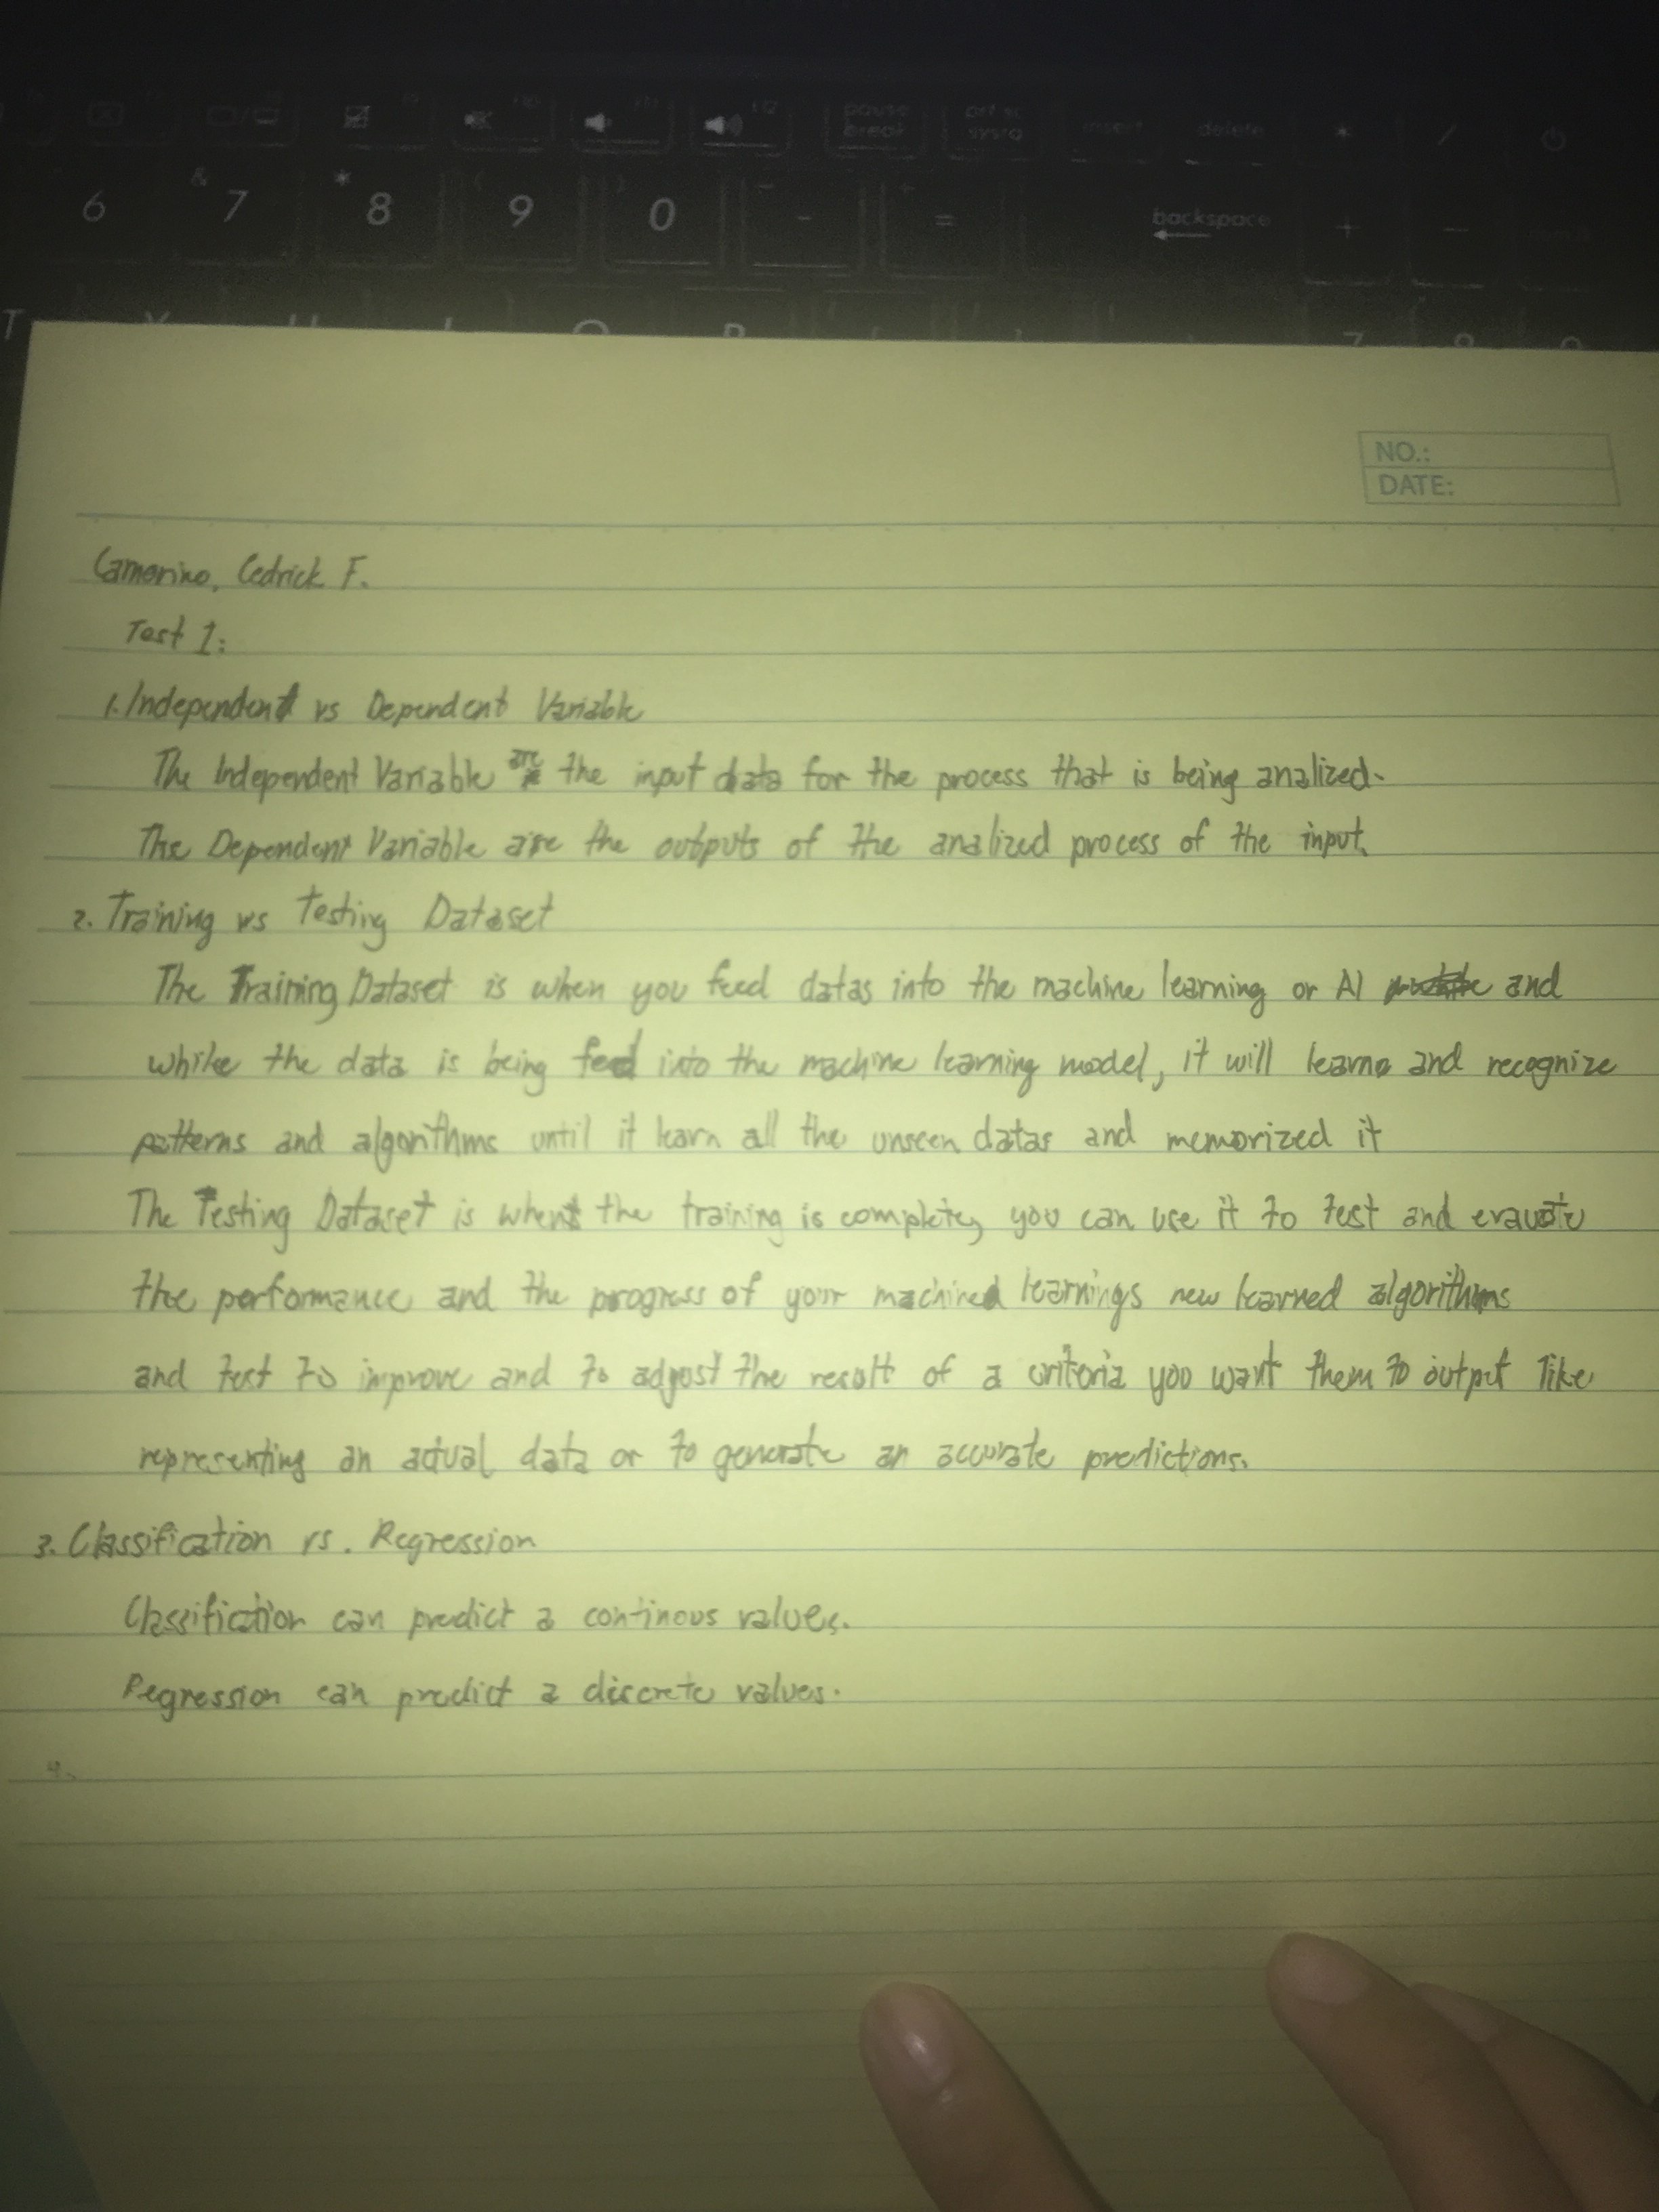 pause break
prt sc sysrq
insert
delete
*
/
6
& 7
* 8
( 9
) 0
-
=
backspace
+
-
T Y U I O P 7 8 9
NO.:
DATE:
Camorino, Cedrick F.
Test 1:
1. Independent vs Dependent Variable
The Independent Variable are the input data for the process that is being analized.
The Dependent Variable are the outputs of the analized process of the input.
2. Training vs Testing Dataset
The Training Dataset is when you feed datas into the machine learning or AI and
while the data is being feed into the machine learning model, it will learn and recognize
patterns and algorithms until it learn all the unseen datas and memorized it
The Testing Dataset is when the training is complete, you can use it to test and
the performance and the progress of your machine learnings new learned algorithms
and test to improve and to adjust the result of a criteria you want them to output like
representing an actual data or to generate an accurate predictions.
3. Classification vs. Regression
Classification can predict a continous values.
Regression can predict a discrete values.
4.